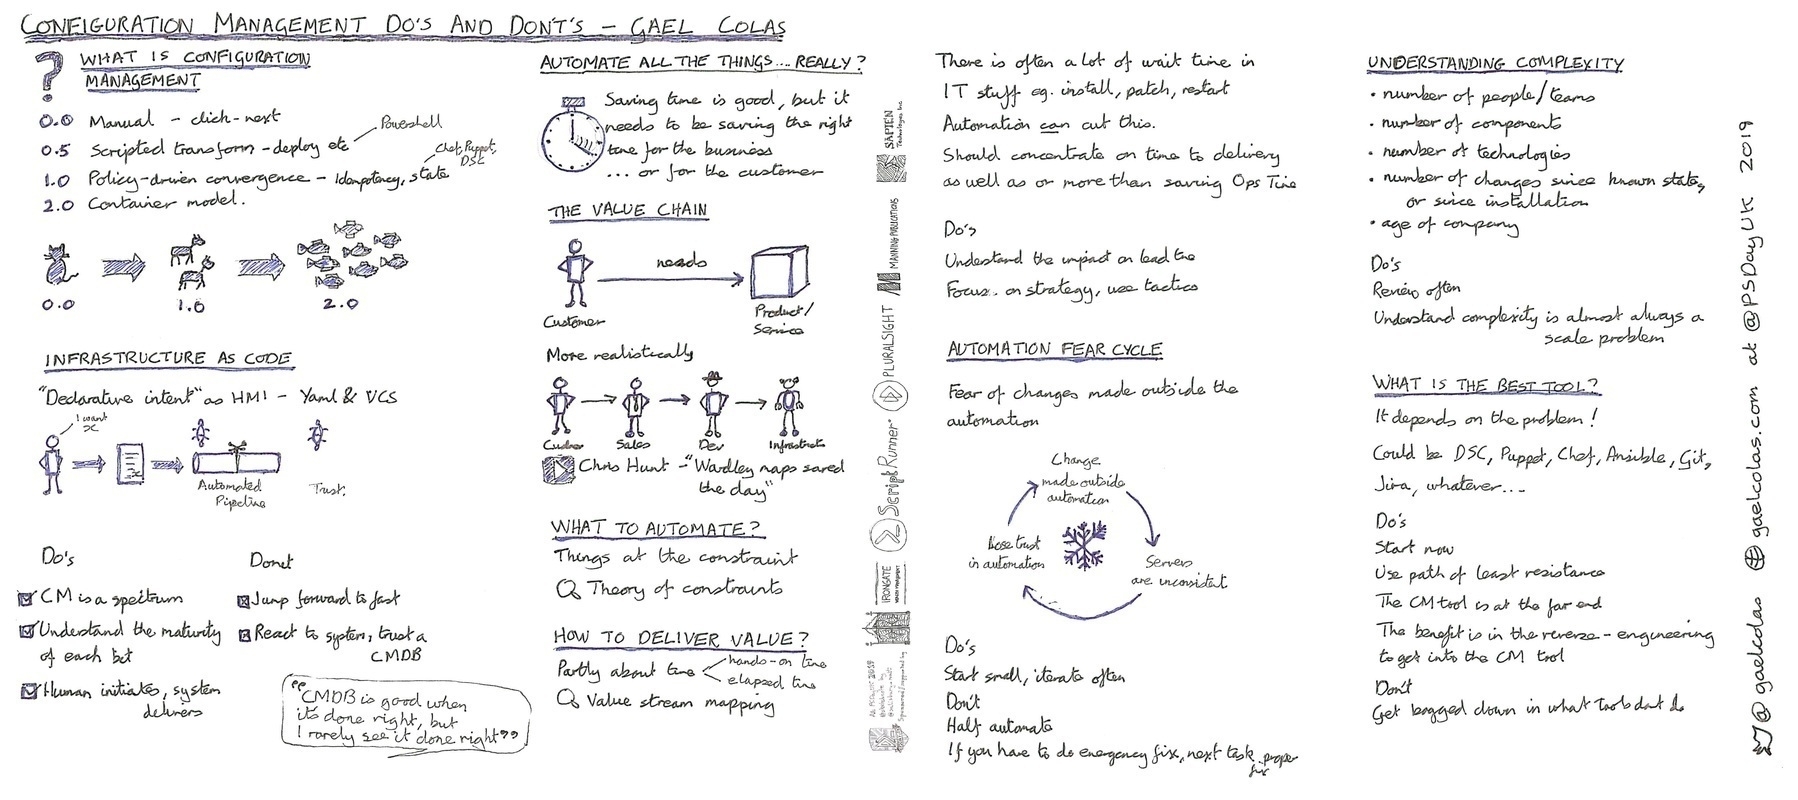 CONFIGURATION MANAGEMENT DO'S AND DONT'S - GAEL COLAS
? WHAT IS CONFIGURATION
MANAGEMENT
0.0 Manual - click-next
0.5 Scripted transform - deploy etc
Powershell
1.0 Policy-driven convergence - Idempotency, state
Chef, Puppet,
DSC
2.0 Container model.
0.0 1.0 2.0
INFRASTRUCTURE AS CODE
"Declarative intent" as HMI - Yaml & VCS
I want
x
Automated
Pipeline
Trust.
Do's
CM is a spectrum
Understand the maturity
of each bit
Human initiates, system
delivers
Donut
Jump forward to fast
React to system, trust a
CMDB
"CMDB is good when
its done right, but
I rarely see it done right"
AUTOMATE ALL THE THINGS... REALLY?
Saving time is good, but it
needs to be saving the right
time for the business
... or for the customer
THE VALUE CHAIN
needs
Customer
Product/
Service
More realistically
Sales
Dev
Chris Hunt - "Wardley maps saved
the day"
WHAT TO AUTOMATE?
Things at the constraint
Theory of constraints
HOW TO DELIVER VALUE?
Partly about time
hands-on time
elapsed time
Value stream mapping
SAPIEN
Technologies, Inc
MANNING PUBLICATIONS
PLURALSIGHT
ScriptRunner
IRONGATE
There is often a lot of wait time in
IT stuff eg. install, patch, restart
Automation can cut this.
Should concentrate on time to delivery
as well as or more than saving Ops Time
Do's
Understand the impact on lead time
Focus on strategy, use tactics
AUTOMATION FEAR CYCLE
Fear of changes made outside the
automation
Change
made outside
automation
Servers
are inconsistent
lose trust
in automation
Do's
Start small, iterate often
Don't
Half automate
If you have to do emergency fix, next task proper
fix
UNDERSTANDING COMPLEXITY
• number of people/teams
• number of components
• number of technologies
• number of changes since known state,
or since installation
• age of company
Do's
Review often
Understand complexity is almost always a
scale problem
WHAT IS THE BEST TOOL?
It depends on the problem!
Could be DSC, Puppet, Chef, Ansible, Git,
Jira, whatever...
Do's
Start now
Use path of least resistance
The CM tool is at the far end
The benefit is in the reverse-engineering
to get into the CM tool
Don't
Get bogged down in what tools
@gaelcolas gaelcolas.com at @PSDayUK 2019